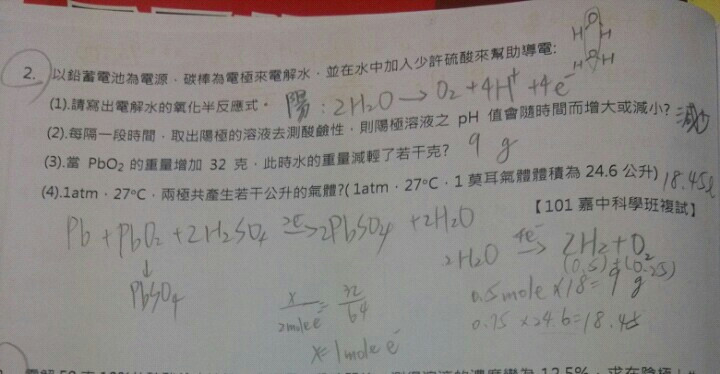 2. 以鉛蓄電池為電源，碳棒為電極來電解水，並在水中加入少許硫酸來幫助導電:
(1).請寫出電解水的氧化半反應式。 陽：2H₂O → O₂+4H⁺+4e⁻
(2).每隔一段時間，取出陽極的溶液去測酸鹼性，則陽極溶液之 pH 值會隨時間而增大或減小? 減少
(3).當 PbO₂ 的重量增加 32 克，此時水的重量減輕了若干克? 9 g
(4).1atm，27°C，兩極共產生若干公升的氣體?( 1atm，27°C，1 莫耳氣體體積為 24.6 公升) 18.45l
【101 嘉中科學班複試】
Pb + PbO₂ + 2H₂SO₄ 2e⁻→ 2PbSO₄ + 2H₂O
↓
PbSO₄
2H₂O 4e⁻→ 2H₂+O₂
(0.5)+(0.25)
x/2mole e⁻ = 32/64
x=1mole e⁻
0.5mole×18=9 g
0.75 ×24.6=18.45
H O H
H O H